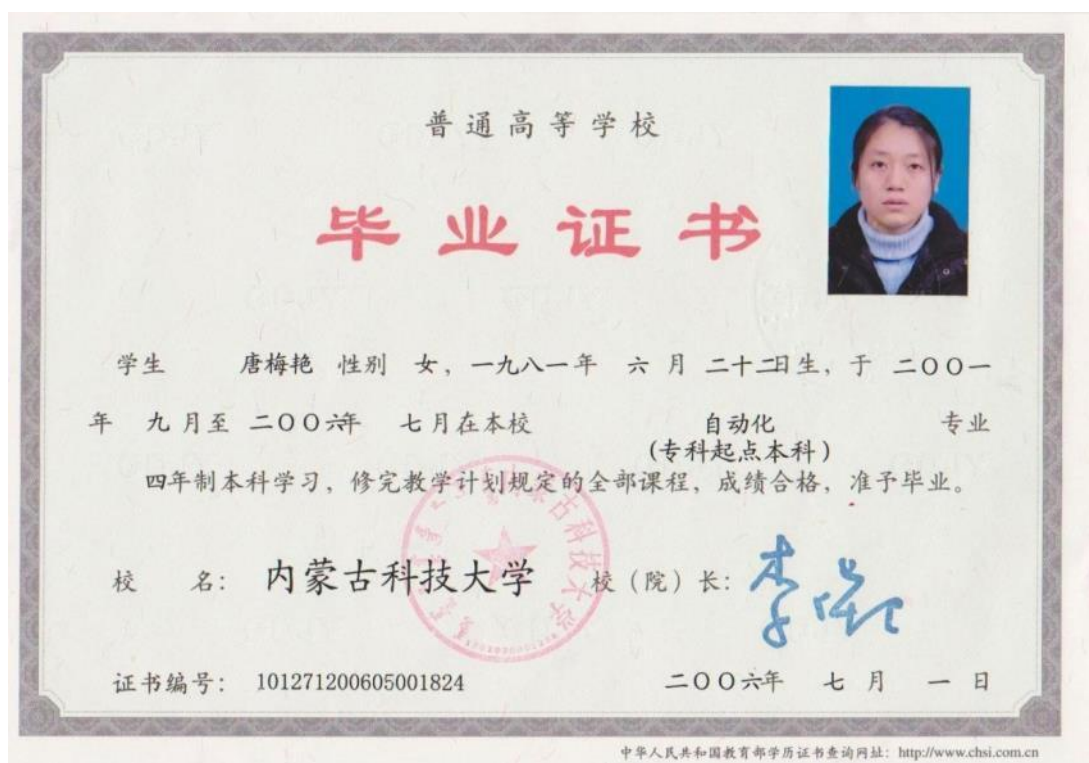 普通高等学校
毕业证书
学生 唐梅艳 性别 女，一九八一年 六 月 二十二日生，于 二〇〇一
年 九 月至 二〇〇六年 七 月在本校 自动化 专业
(专科起点本科)
四年制本科学习，修完教学计划规定的全部课程，成绩合格，准予毕业。
校 名： 内蒙古科技大学 校（院）长：
内蒙古科技大学
证书编号： 101271200605001824 二〇〇六年 七 月 一 日
中华人民共和国教育部学历证书查询网址：http://www.chsi.com.cn